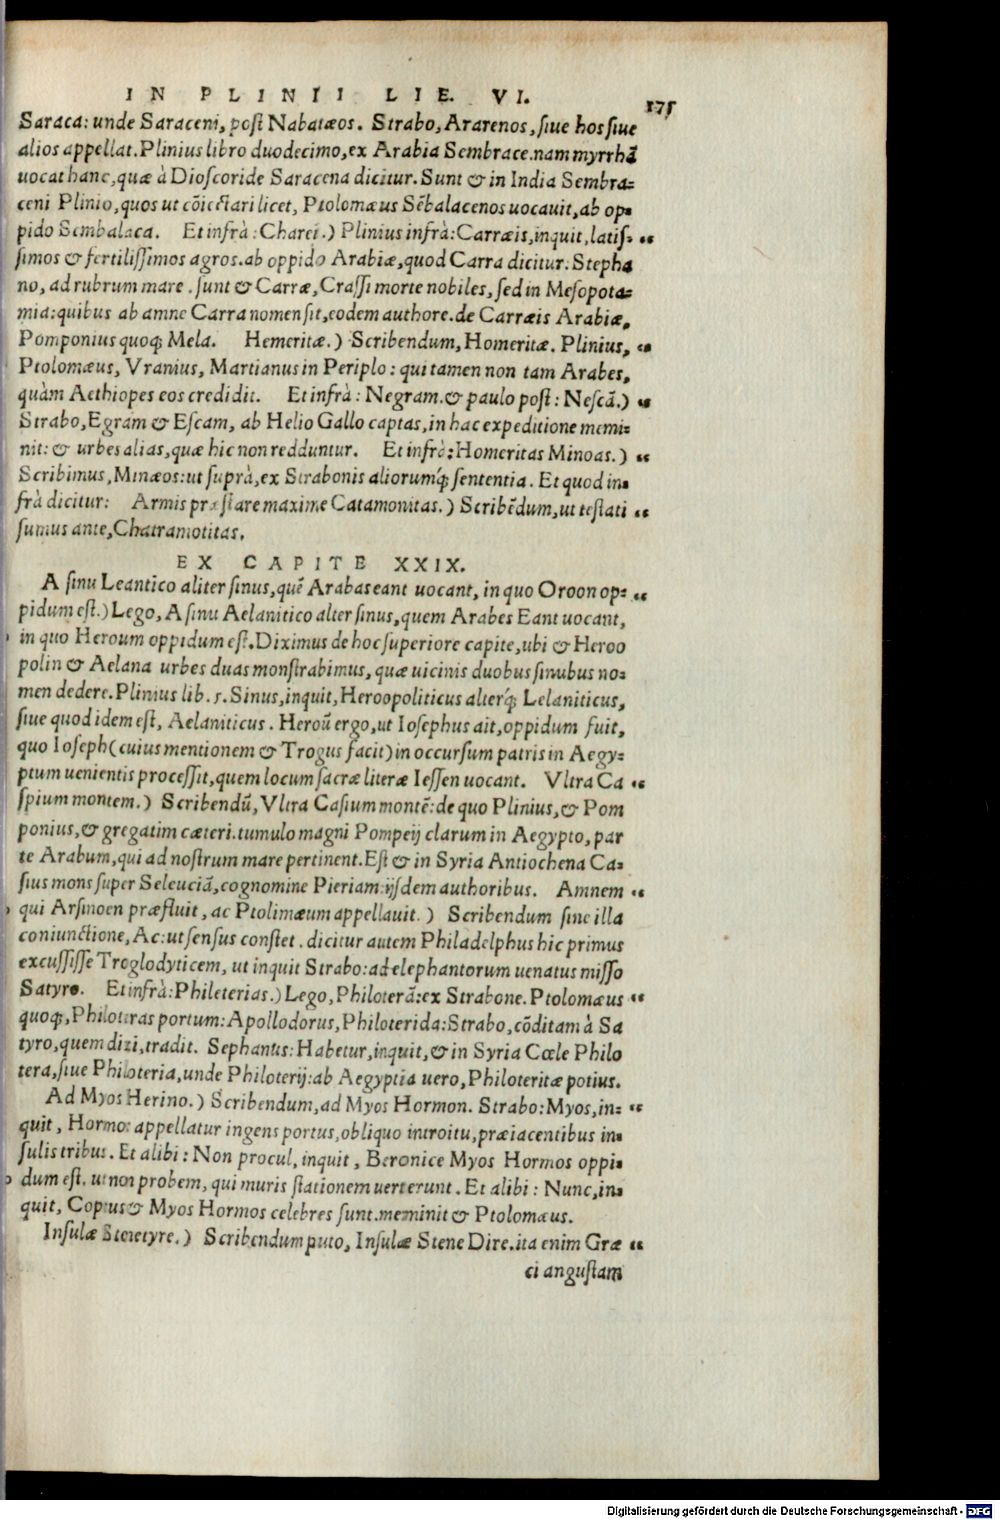 IN PLINII LIE. VI. 175
Saraca: unde Saraceni, post Nabatæos. Strabo, Ararenos, siue hos siue
alios appellat. Plinius libro duodecimo, ex Arabia Sembrace. nam myrrhā
uocat hanc, quæ à Dioscoride Saracena dicitur. Sunt & in India Sembra=
ceni Plinio, quos ut cōiectari licet, Ptolomæus Sēbalacenos uocauit, ab op=
pido Sembalaca. Et infrà: Charei.) Plinius infrà: Carræis, inquit, latis= “
simos & fertilissimos agros. ab oppido Arabiæ, quod Carra dicitur: Stepha
no, ad rubrum mare. sunt & Carræ, Crassi morte nobiles, sed in Mesopota=
mia: quibus ab amne Carra nomen sit, eodem authore. de Carræis Arabiæ,
Pomponius quoq; Mela. Hemeritæ.) Scribendum, Homeritæ. Plinius, “
Ptolomæus, Vranius, Martianus in Periplo: qui tamen non tam Arabes,
quàm Aethiopes eos credidit. Et infrà: Negram. & paulo post: Nescā.) “
Strabo, Egram & Escam, ab Helio Gallo captas, in hac expeditione memi=
nit: & urbes alias, quæ hic non redduntur. Et infrà: Homeritas Minoas.) “
Scribimus, Minæos: ut suprà, ex Strabonis aliorumq́; sententia. Et quod in=
frà dicitur: Armis præstare maxime Catamonitas.) Scribēdum, ut testati “
sumus ante, Chatramotitas.
EX CAPITE XXIX.
A sinu Leantico aliter sinus, quē Arabas eant uocant, in quo Oroon op= “
pidum est.) Lego, A sinu Aelanitico alter sinus, quem Arabes Eant uocant,
in quo Heroum oppidum est. Diximus de hoc superiore capite, ubi & Heroo
polin & Aelana urbes duas monstrabimus, quæ uicinis duobus sinubus no=
men dedere. Plinius lib. 5. Sinus, inquit, Heroopoliticus alterq́; Lelaniticus,
siue quod idem est, Aelaniticus. Heroū ergo, ut Iosephus ait, oppidum fuit,
quo Ioseph (cuius mentionem & Trogus facit) in occursum patris in Aegy=
ptum uenientis processit, quem locum sacræ literæ Iessen uocant. Vltra Ca “
spium montem.) Scribendū, Vltra Casium montē: de quo Plinius, & Pom
ponius, & gregatim cæteri. tumulo magni Pompeij clarum in Aegypto, par
te Arabum, qui ad nostrum mare pertinent. Est & in Syria Antiochena Ca=
sius mons super Seleuciā, cognomine Pieriam: ijsdem authoribus. Amnem “
qui Arsinoen præfluit, ac Ptolimæum appellauit.) Scribendum sine illa
coniunctione, Ac: ut sensus constet. dicitur autem Philadelphus hic primus
excussisse Troglodyticem, ut inquit Strabo: ad elephantorum uenatus misso
Satyro. Et infrà: Phileterias.) Lego, Philoterā: ex Strabone. Ptolomæus “
quoq;, Philoteras portum: Apollodorus, Philoterida: Strabo, cōditam à Sa
tyro, quem dixi, tradit. Sephanus: Habetur, inquit, & in Syria Cœle Philo
tera, siue Philoteria, unde Philoterij: ab Aegyptia uero, Philoteritæ potius.
Ad Myos Herino.) Scribendum, ad Myos Hormon. Strabo: Myos, in= “
quit, Hormo: appellatur ingens portus, obliquo introitu, præiacentibus in=
sulis tribus. Et alibi: Non procul, inquit, Beronice Myos Hormos oppi=
dum est. ut non probem, qui muris stationem uerterunt. Et alibi: Nunc, in=
quit, Coptus & Myos Hormos celebres sunt. meminit & Ptolomæus.
Insulæ Steretyre.) Scribendum puto, Insulæ Stene Dire. ita enim Græ “
ci angustam
Digitalisierung gefördert durch die Deutsche Forschungsgemeinschaft - DFG